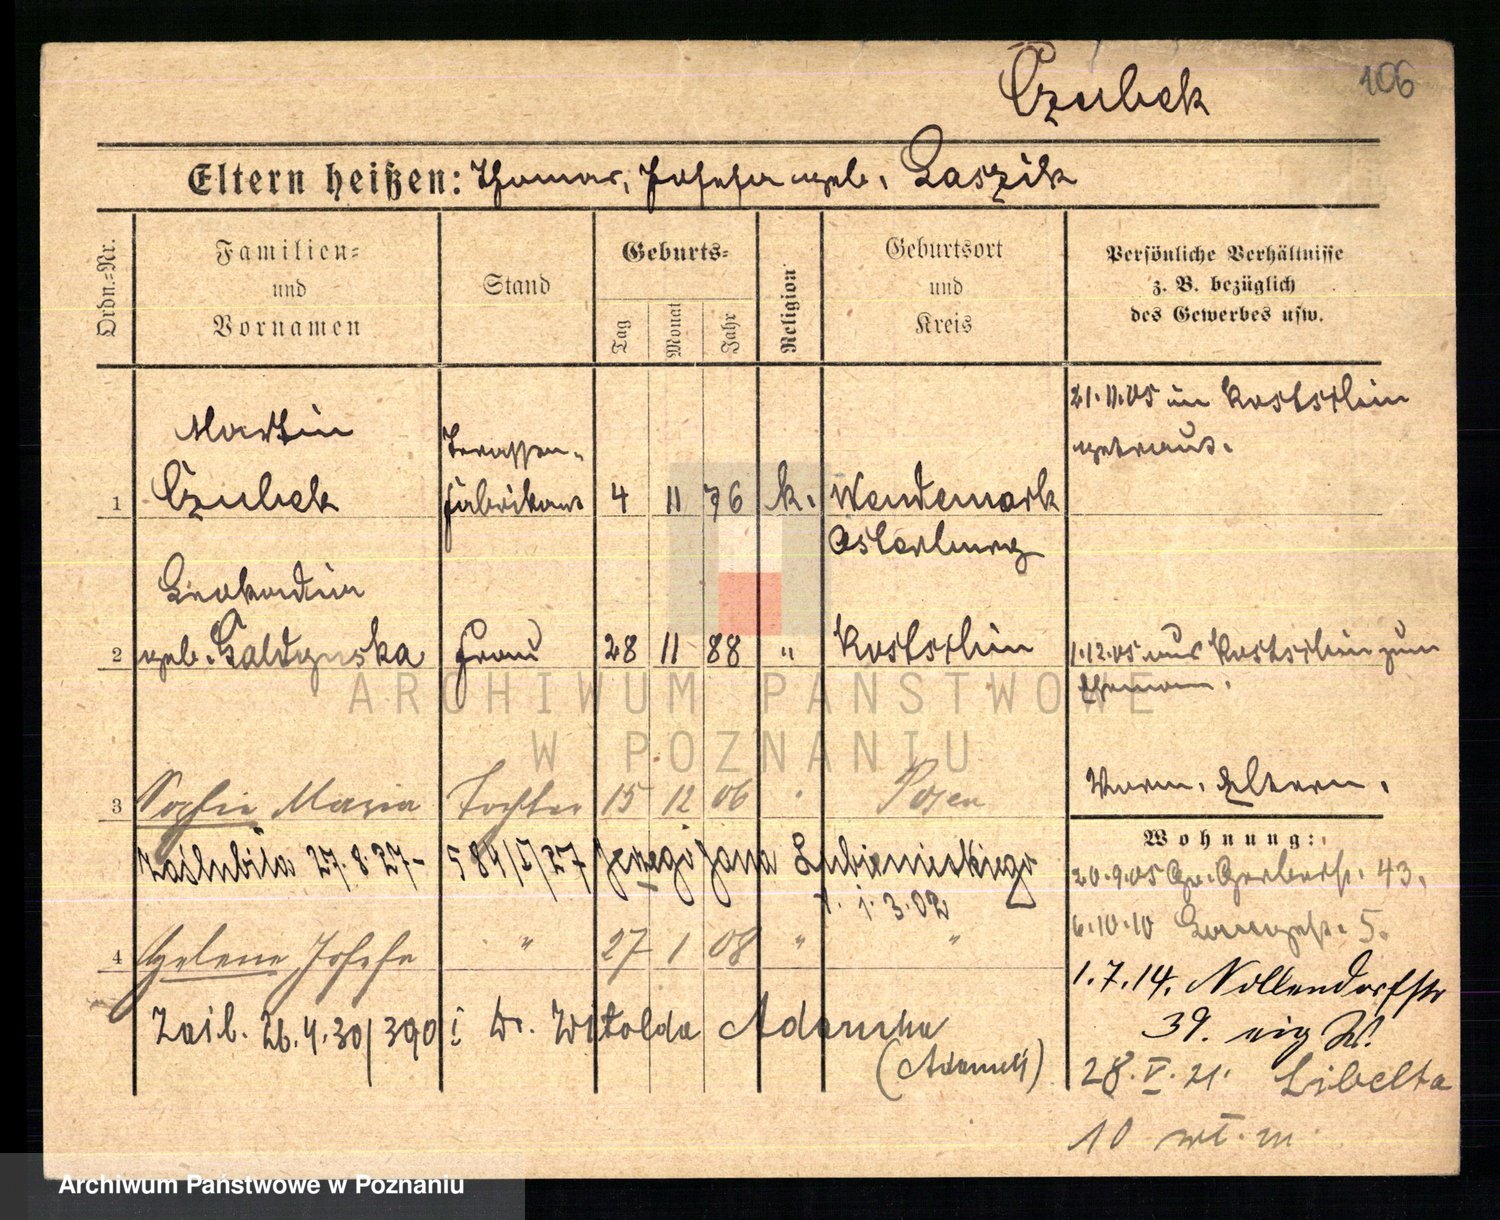 Czubek
106
Eltern heißen: Thomas, Josefa geb. Laszik
Ordn.=Nr.
Familien=
und
Vornamen
Stand
Geburts=
Tag
Monat
Jahr
Religion
Geburtsort
und
Kreis
Persönliche Verhältnisse
z. B. bezüglich
des Gewerbes usw.
1
Martin
Czubek
fabrikant
4 11 76 k.
Wendemark
Osterburg
21.11.05 in Kostschin
getraut.
2
Leokadia
geb. Galdynska
Frau
28 11 88 "
Kostschin
1.12.05 aus Kostschin zum
Ehemann.
3 Sophie Maria Tochter 15 12 06 " Posen
Vorm. Eltern.
zaślubiła 27.8.27 - 584/I/27 Jerzego Jana Lubienieckiego
1.3.02
4 Helene Josefa " 27 1 08 " "
Zaśl. 26.4.30/390 I Dr. Witolda Adamka
(Adamek)
Wohnung:
20.9.05 Gr. Gerberst. 43.
6.10.10 Langest. 5.
1.7.14. Nollendorfstr
39. eig W.
28.V.21. Libelta
10 wł. m.
ARCHIWUM PAŃSTWOWE
W POZNANIU
Archiwum Państwowe w Poznaniu